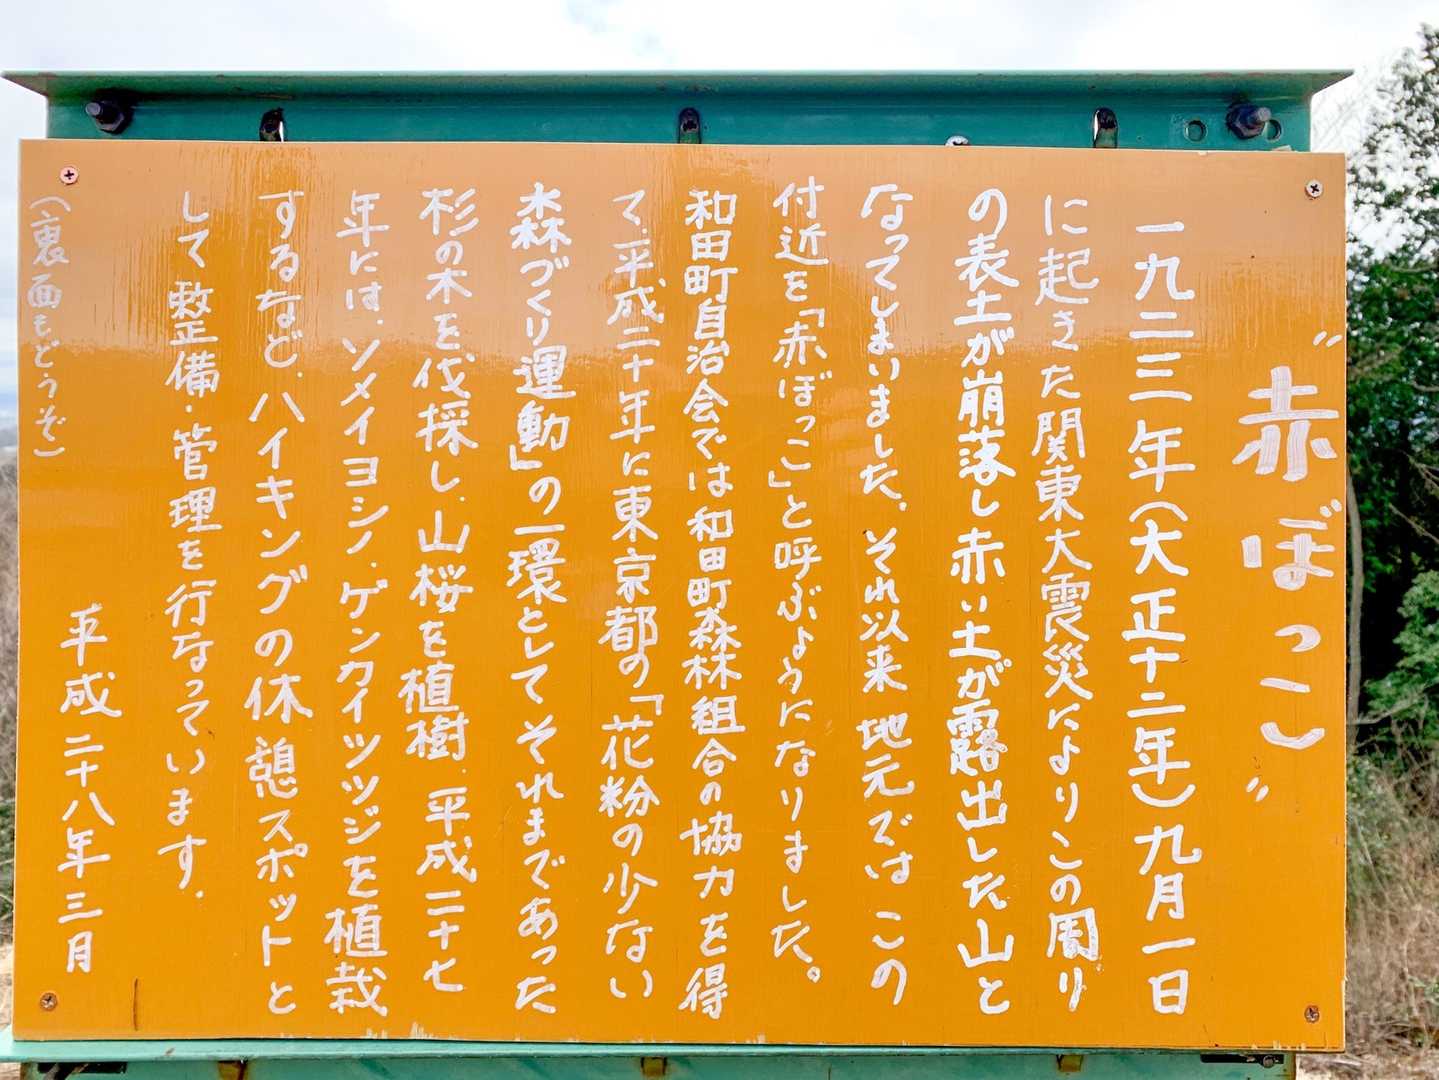 〝赤ぼっこ〟
一九二三年(大正十二年)九月一日
に起きた関東大震災によりこの周り
の表土が崩落し赤い土が露出した山と
なってしまいました、それ以来地元ではこの
付近を「赤ぼっこ」と呼ぶようになりました。
和田町自治会では和田町森林組合の協力を得
て、平成二十年に東京都の「花粉の少ない
森づくり運動」の一環としてそれまであった
杉の木を伐採し、山桜を植樹、平成二十七
年には、ソメイヨシノ、ゲンカイツツジを植栽
するなど、ハイキングの休憩スポットと
して整備・管理を行なっています。
平成二十八年三月
(裏面もどうぞ)